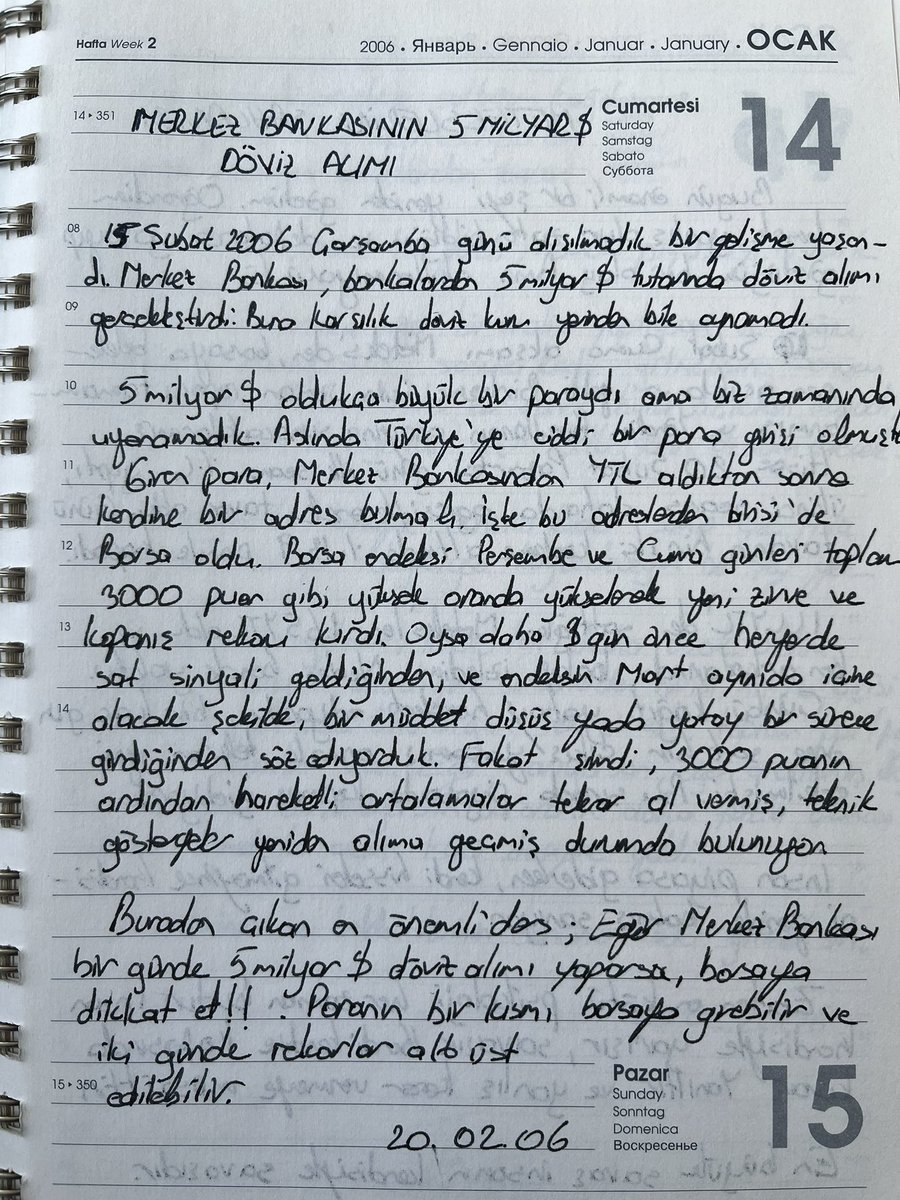 Hafta Week 2
2006 • Январь • Gennaio • Januar • January • OCAK
14▸351
Cumartesi
Saturday
Samstag
Sabato
Суббота
14
MERKEZ BANKASININ 5 MİLYAR $
DÖVİZ ALIMI
08
15 Şubat 2006 Çarşamba günü alışılmadık bir gelişme yaşan-
dı. Merkez Bankası, bankalardan 5 milyar $ tutarında döviz alımı
09
gerçekleştirdi. Buna karşılık döviz kuru yerinden bile oynamadı.
10
5 milyar $ oldukça büyük bir paraydı ama biz zamanında
uyanamadık. Aslında Türkiye'ye ciddi bir para girişi olmuştu
11
Giren para, Merkez Bankasından YTL aldıktan sonra
kendine bir adres bulmalı, işte bu adreslerden birisi'de
12
Borsa oldu. Borsa endeksi Perşembe ve Cuma günleri toplam
3000 puan gibi yüksek oranda yükselerek yeni zirve ve
13
kapanış rekoru kırdı. Oysa daha gün önce heryerde
sat sinyali geldiğinden, ve endeksin Mart ayınıda içine
14
alacak şekilde, bir müddet düşüş yada yatay bir sürece
girdiğinden söz ediyorduk. Fakat şimdi, 3000 puanın
ardından hareketli ortalamalar tekrar al vermiş, teknik
göstergeler yeniden alıma geçmiş durumda bulunuyor.
Buradan çıkan en önemli ders; Eğer Merkez Bankası
bir günde 5 milyar $ döviz alımı yaparsa, borsaya
dikkat et!!. Paranın bir kısmı borsaya girebilir ve
iki günde rekorlar alt üst
15▸350
edilebilir.
20.02.06
Pazar
Sunday
Sonntag
Domenica
Воскресенье
15